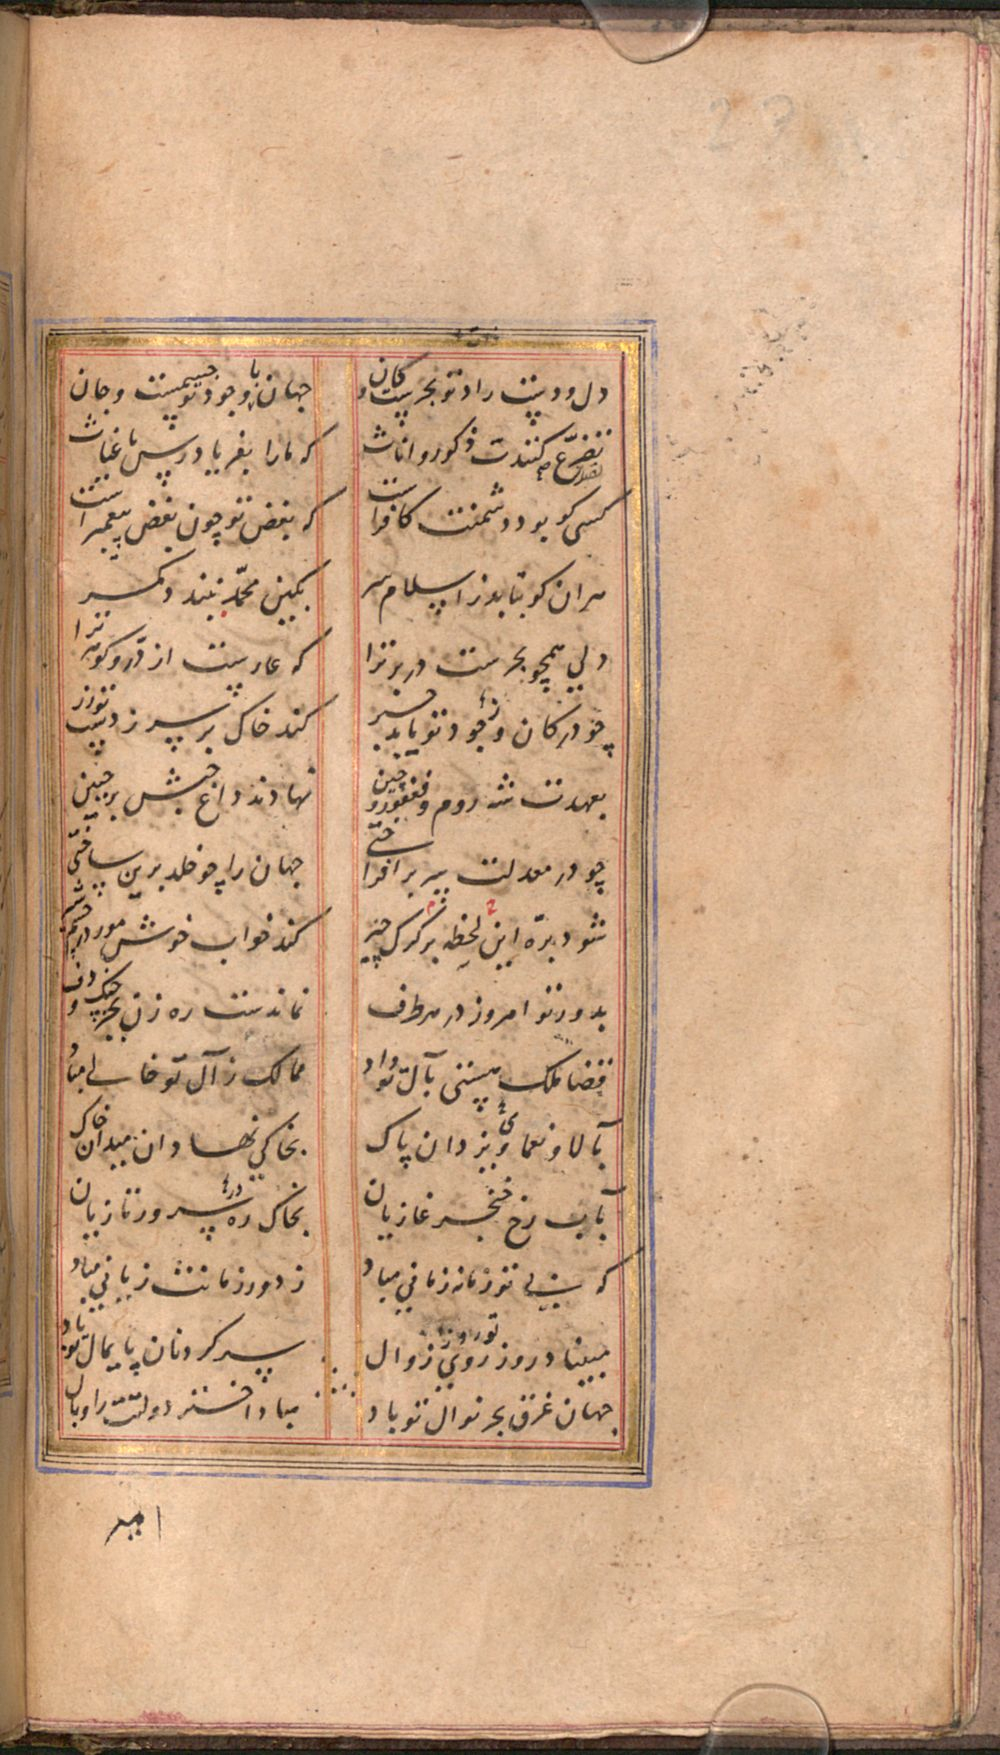 دل و دستت راد تو بحرست و کان
جهان با وجود تو جسمست و جان
تضرع کنندت ذکور و اناث
که ما را بفریاد رس یا غیاث
کسی کو بود دشمنت کافر است
که بغض تو چون بغض پیغمبر است
هر آن کو بتابد ز اسلام سر
بکین محمد نبندد کمر
دلی همچو بحرست در بر ترا
که عارست از در و گوهر ترا
چو در کان ز جود تو یابد خبر
کند خاک بر سر ز دست تو زر
بعهدت شه روم و فغفور چین
نهادند داغ حبش بر جبین
چو در معدلت سر بر افراختی
جهان را چو خلد برین ساختی
شود بره این لحظه بر گرگ چیر
کند خواب خوش مور در چشم شیر
بدور تو امروز در هر طرف
نماندست ره زن بجز چنگ و دف
قضا ملک هستی بآل تو داد
ممالک ز آل تو خالی مباد
بآلا و نعمای یزدان پاک
بخاکی نهادان میدان خاک
بآب رخ خنجر غازیان
بخاک ره سرور تازیان
که بی تو زمانه زمانی مباد
ز دور زمانت زیانی مباد
مبیناد روز تو روی زوال
مبادا اختر دولتت را وبال
جهان غرق بحر نوال تو باد
سر گردنان پایمال تو باد